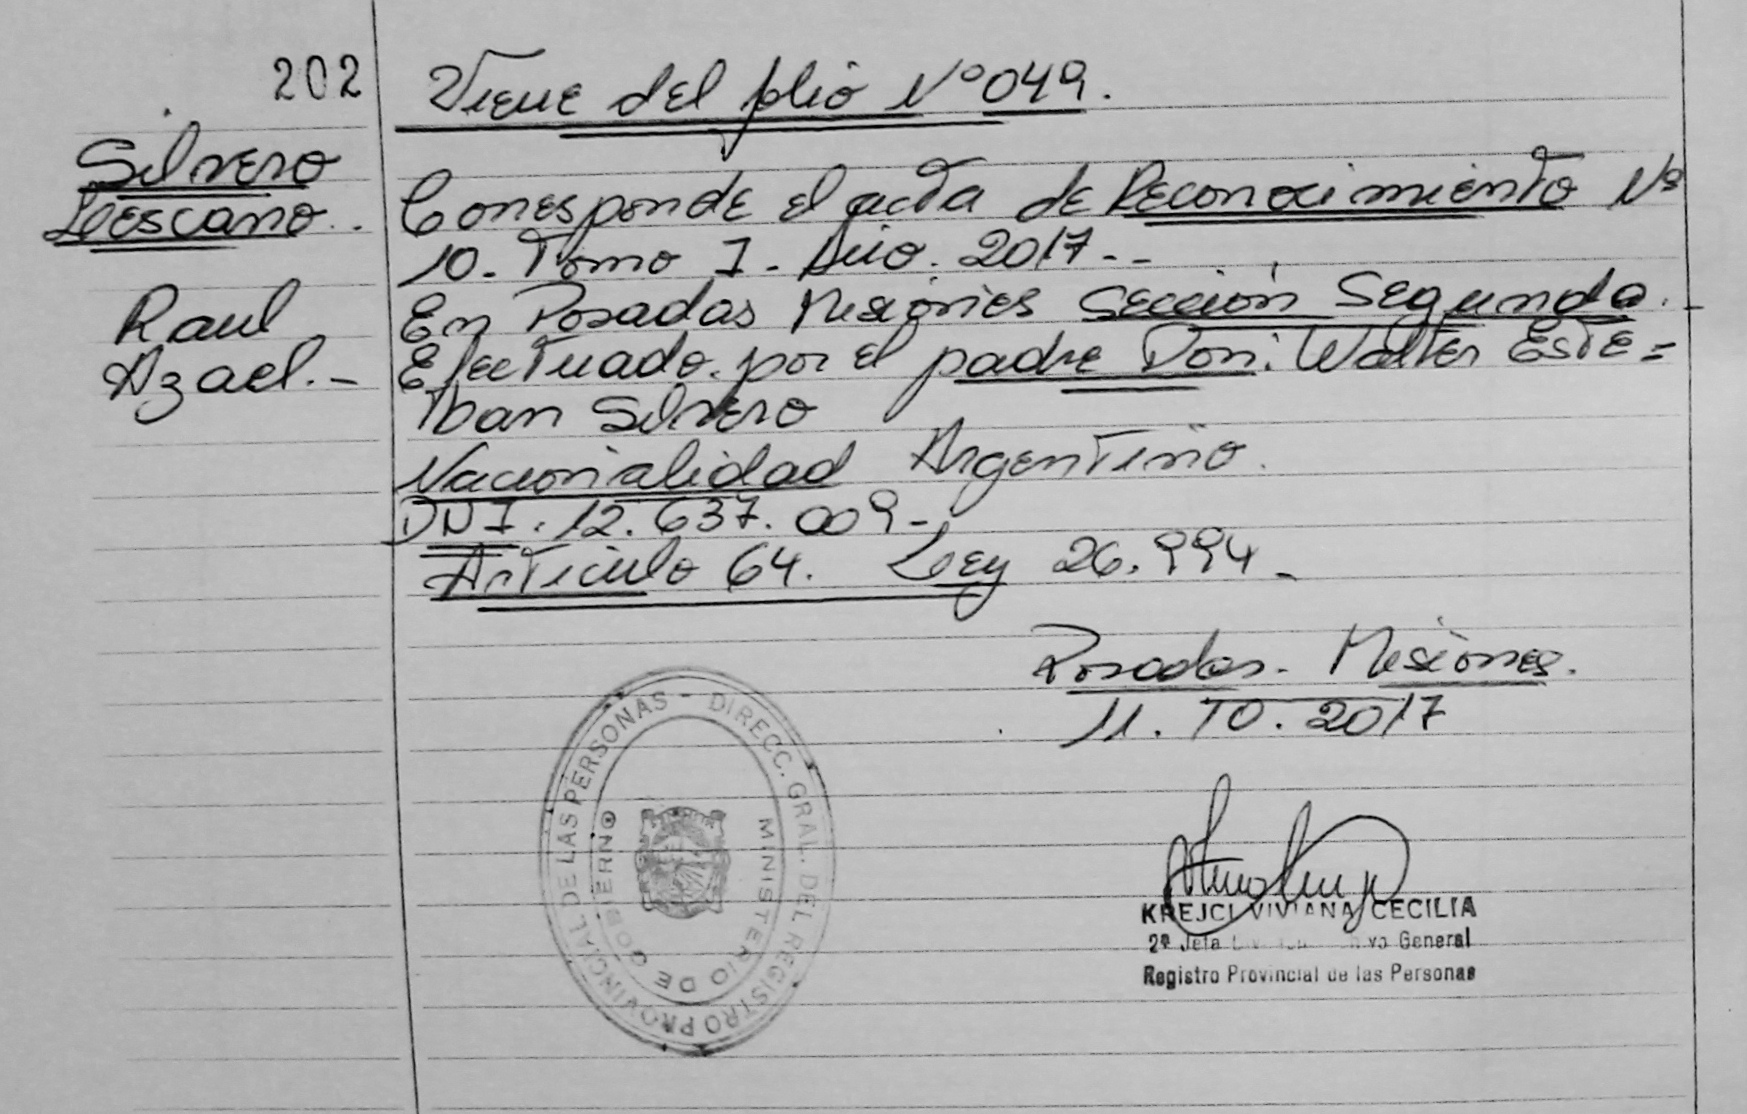 202
Viene del folio Nº 049.
Silvero
Leescano..
Raul
Azael.-
Corresponde el acta de Reconocimiento Nº
10. Tomo I. Año. 2017.--
En Posadas Misiones Sección Segunda.-
Efectuado. por el padre Don: Walter Este=
ban Silvero
Nacionalidad Argentino.
DNI. 12.637.009-
Articulo 64. Ley 26.994-
Posadas- Misiones.
11. 10. 2017
DIRECC. GRAL. DEL REGISTRO PROVINCIAL DE LAS PERSONAS -
MINISTERIO DE GOBIERNO
KREJCI VIVIANA CECILIA
2º Jefa General
Registro Provincial de las Personas